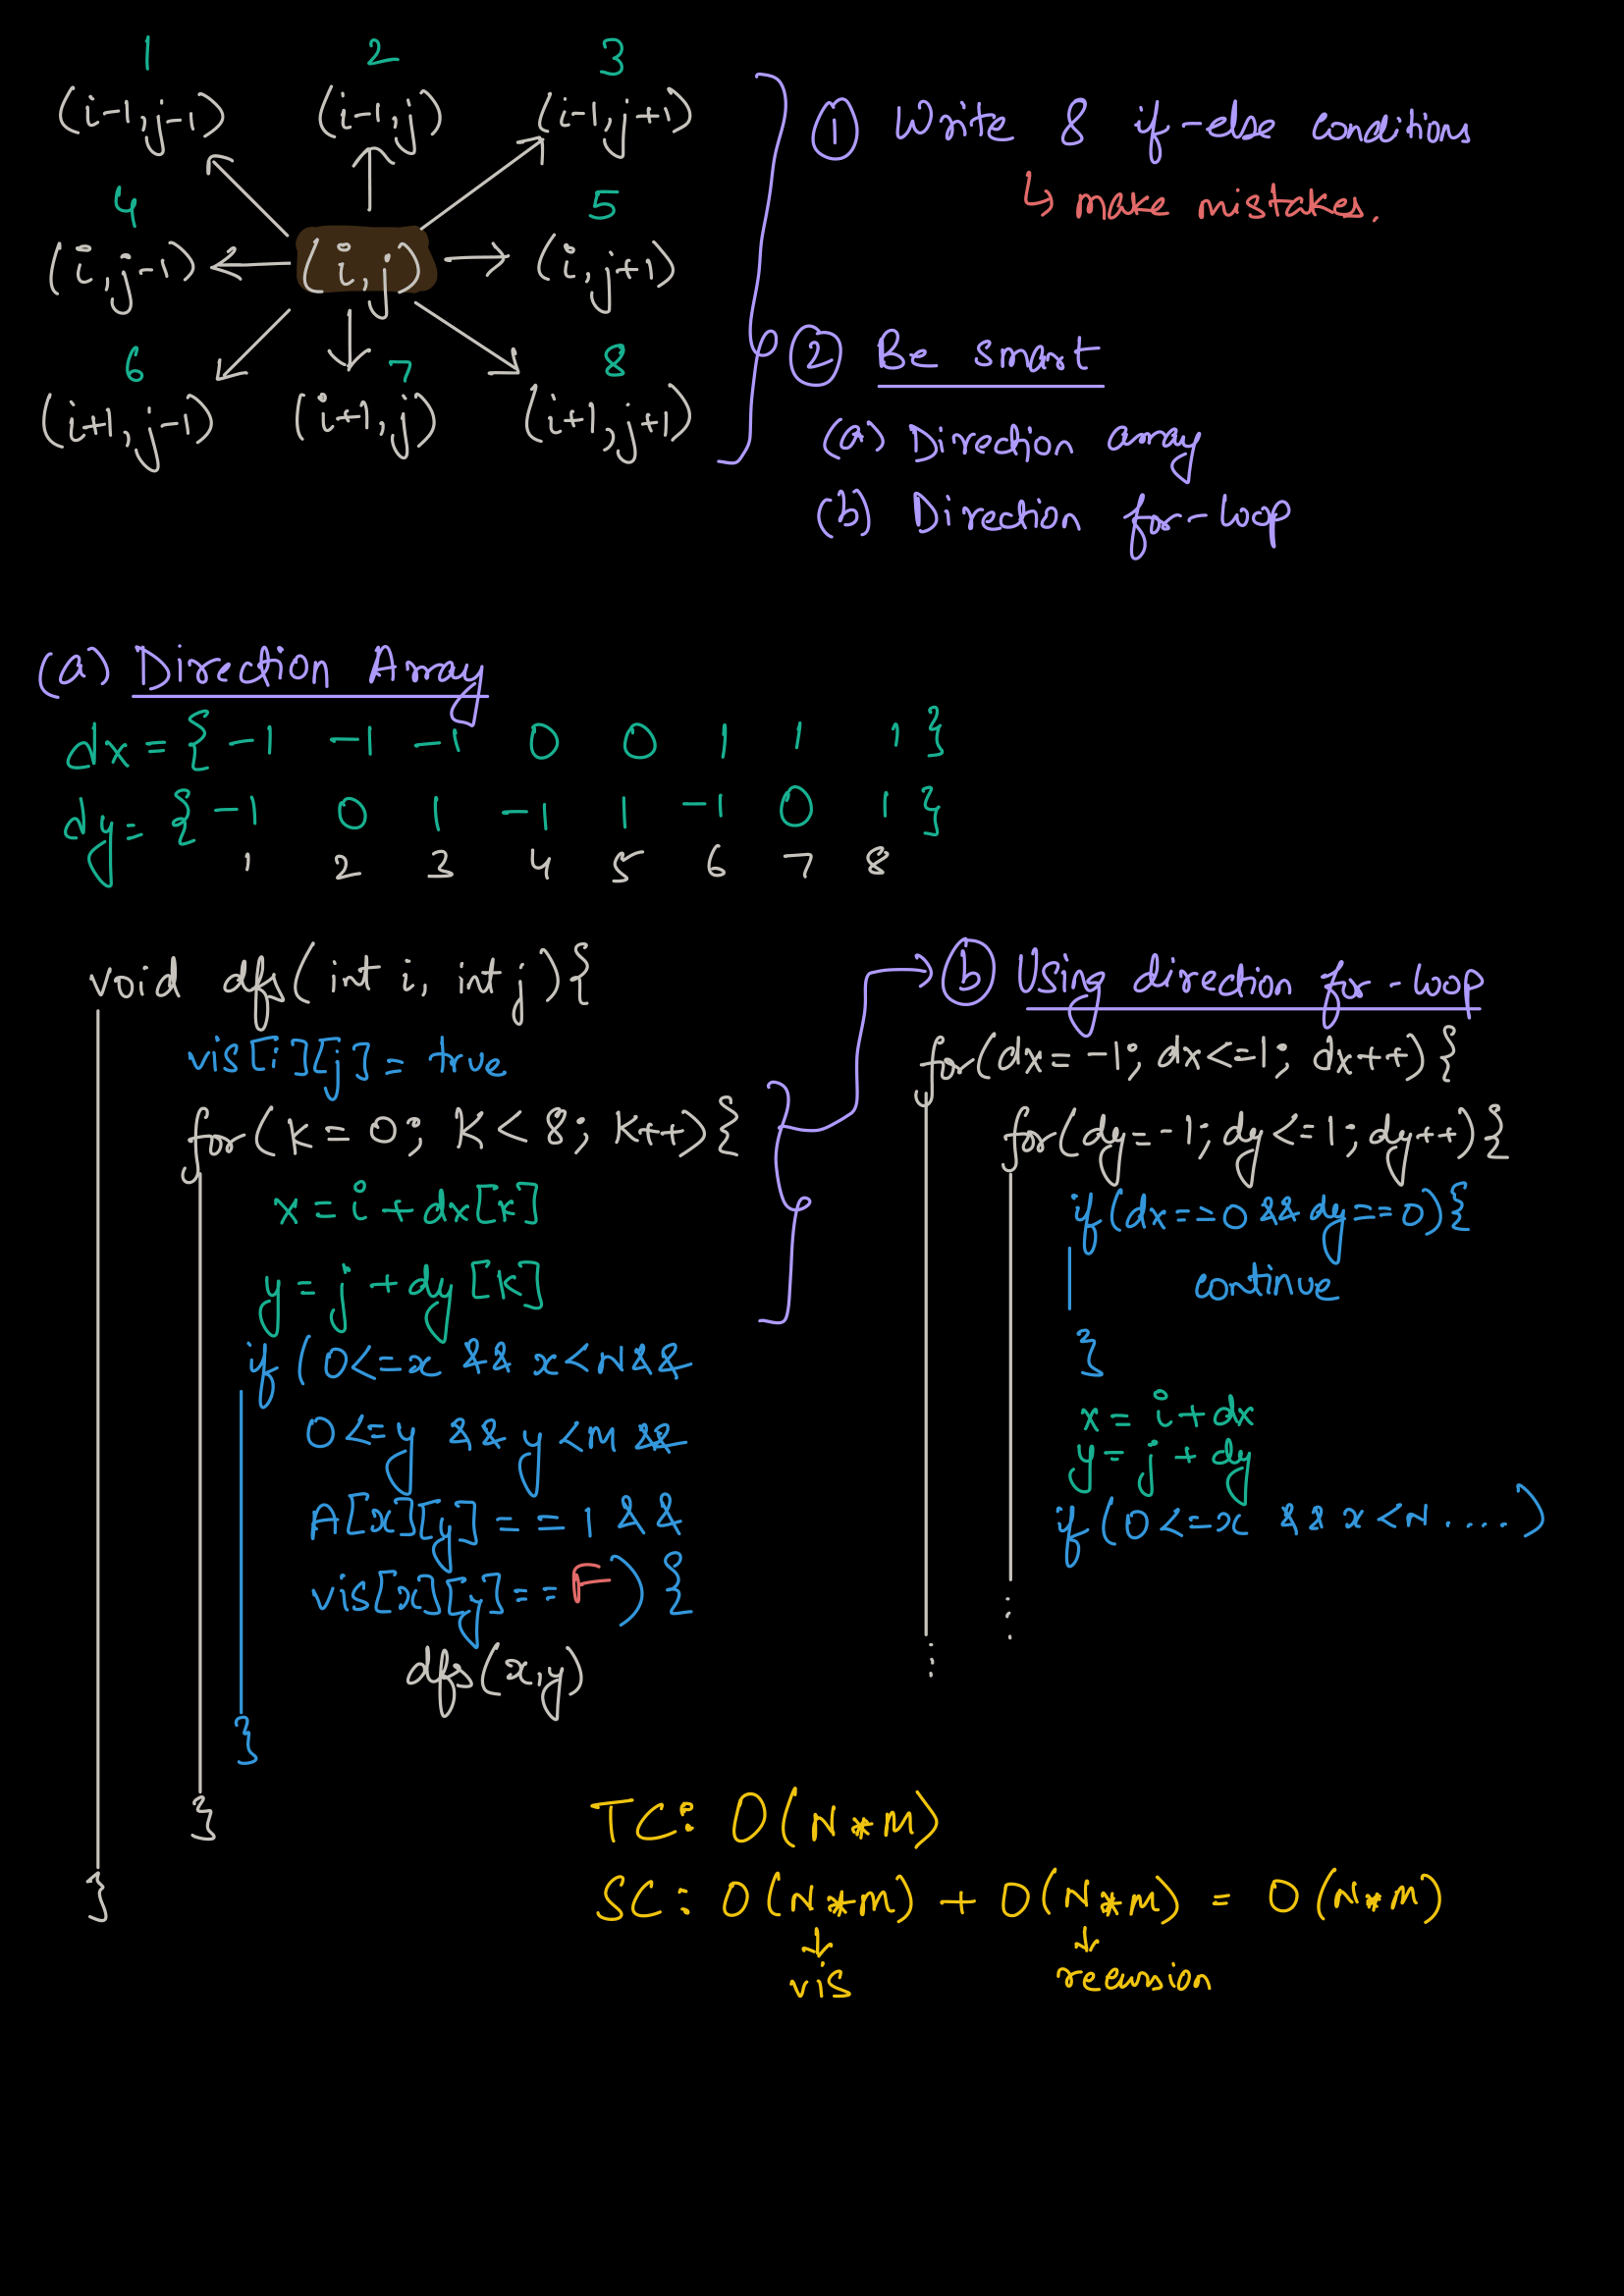 1 2 3
(i-1,j-1) (i-1,j) (i-1,j+1)
4 5
(i,j-1) (i,j) (i,j+1)
6 7 8
(i+1,j-1) (i+1,j) (i+1,j+1)
① Write 8 if-else conditions
↳ make mistakes.
② Be smart
(a) Direction array
(b) Direction for-loop
(a) Direction Array
dx = {-1 -1 -1 0 0 1 1 1}
dy = {-1 0 1 -1 1 -1 0 1}
1 2 3 4 5 6 7 8
void dfs(int i, int j){
vis[i][j] = true
for(k = 0; k < 8; k++){
x = i + dx[k]
y = j + dy[k]
if (0<=x && x<N&&
0<=y && y<M &&
A[x][y] == 1 &&
vis[x][y]==F){
dfs(x,y)
}
}
}
ⓑ Using direction for-loop
for(dx= -1; dx<=1; dx++){
for(dy=-1; dy<=1; dy++){
if(dx==0 && dy==0){
continue
}
x = i+dx
y = j + dy
if(0<=x && x<N....)
⋮
⋮
TC: O(N*M)
SC: O(N*M) + O(N*M) = O(N*M)
↓ ↓
vis recursion